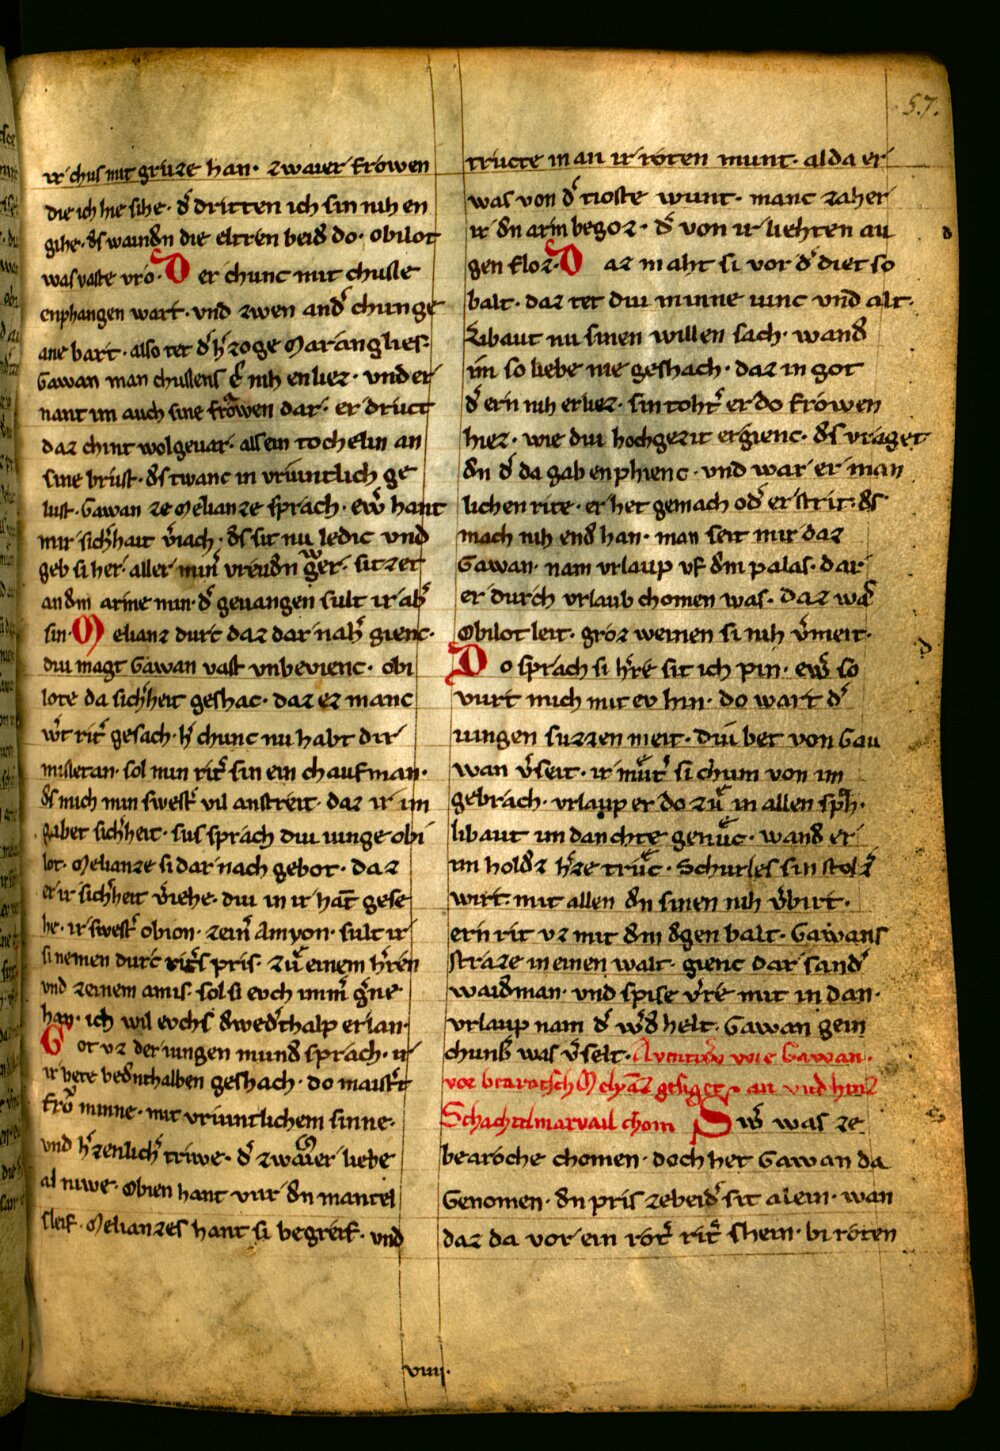 57.
ir chus mit gruze han· zwaier frowen
die ich hie sihe· d̾ dritten ich sin nih en
gihe· ds waindn die eltren beid do· obilot
was vaste vro· Der chunc mit chusse
enphangen wart· vnd zwen and̾ chunge
ane bart· also tet d̾ h̾zoge Maranglies·
Gawan man chussens nih enliez· vnd er
nant im auch sine frowen dar· er druct
daz chint wolgevar· als ein tochelin an
sine brust· ds twanc in vriuntlich ge
lust· Gawan ze Melianze sprach· ew̾ hant
mir sich̾hait v̾iach· ds sit nu ledic vnd
geb si her· aller min̾ vreudn wer· sitzet
an dm arme min· d̾ gevangen sult ir ab̾
sin· Melianz durc daz dar nah̾ gienc·
diu magt Gawan vast vmbevienc· obi
lote da sich̾heit geshac· daz ez manc
w̾t rit̾ gesach· h̾ chunc nu habt dir
missetan· sol min rit̾ sin ein chaufman·
ds mich min swest̾ vil anstreit· daz ir im
gabet sich̾heit· sus sprach diu iunge obi
lot· Melianze si dar nach gebot· daz
er ir sich̾heit v̾iehe· diu in ir hat̄ gese
he· ir swest̾ obion· zeim̄ Amyon· sult ir
si nemen durc rit̾s pris· zu einem h̾ren
vnd zeinem amis· sol si evch imm̾ g̾ne
han· ich wil evchs dwed̾thalp erlan·
Got vz der iungen mund sprach· ir
ir bete bednthalben geshach· do maist̾t
fro minne· mit vriuntlichem sinne·
vnd h̾zenlich̾ triwe· d̾ zwaier liebe
al niwe· Obien hant vur dn mantel
sleif· Melianzes hant si begreif· vnd
tructe man ir roten munt· alda er
was von d̾ tioste wunt· manc zaher
ir dn arm begoz· d̾ von ir liehten au
gen floz· Daz maht si vor d̾ diet so
balt· daz tet diu minne iunc vnd alt·
Libaut nu sinen willen sach· wand
im so liebe nie geshach· daz in got
d̾ ern nih erliez· sin toht̾ er do frowen
hiez· wie diu hochgezit ergienc· ds vraget
dn d̾ da gab enphienc· vnd war er man
lichen rite· er het gemach od̾ er strit· ds
mach nih end han· man seit mir daz
Gawan· nam vrlaup vf dm palas· dar
er durch vrlaub chomen was· daz was
Obilot leit· groz weinen si nih v̾meit·
Do sprach si h̾re sit ich pin· ew̾ so
vurt mich mit ev hin· do wart d̾
iungen suzzen meit· diu bet von Gau
wan v̾seit· ir mut̾ si chum von im
gebrach· vrlaup er do zu in allen sp̾h·
libaut im danchte genuc· wand er
im holdz h̾ze truc· Schurles sin stolz̾
wirt· mit allen dn sinen nih v̾birt·
ern rit vz mit dm dgen balt· Gawans
straze in einen walt· gienc dar sand̾
waidman· vnd spise v̾re mit in dan·
vrlaup nam d̾ w̾d helt· Gawan gein
chumb̾ was v̾selt· Auentiw̾ wie Gawan·
vor bearotsch Melyanz gesiget· an vnd hinz
Schachtelmarvail chom Sw̾ was ze
bearoche chomen· doch het Gawan da
Genomen· dn pris zebeid̾ sit alein· wan
daz da vor ein rot̾ rit̾ shein· bi roten
viiii·